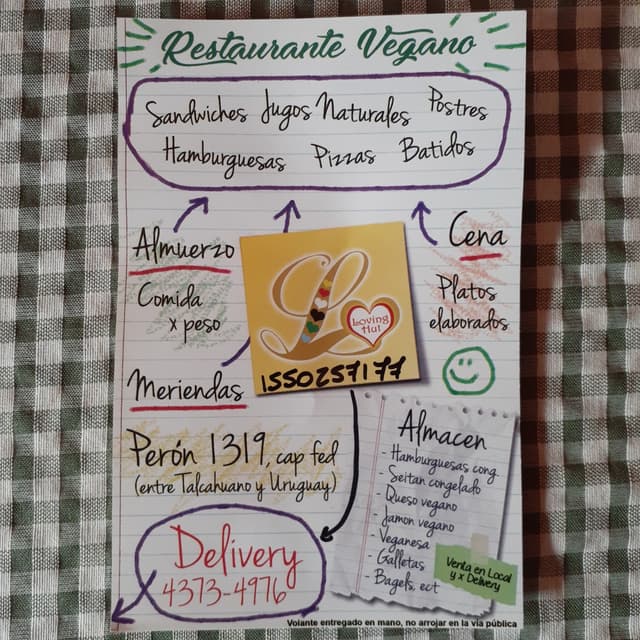 Restaurante Vegano
Sandwiches Jugos Naturales Postres
Hamburguesas Pizzas Batidos
Almuerzo
Comida
x peso
Meriendas
L
Loving
Hut
1550257177
Cena
Platos
elaborados
Perón 1319, cap fed
(entre Talcahuano y Uruguay)
Delivery
4373-4976
Almacen
- Hamburguesas cong.
- Seitan congelado
- Queso vegano
- Jamon vegano
- Veganesa
- Galletas
- Bagels, ect
Venta en Local
y x Delivery
Volante entregado en mano, no arrojar en la vía pública